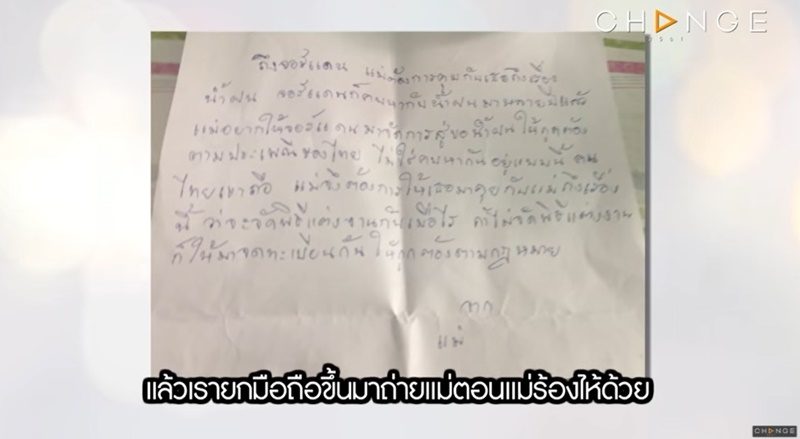 CHANGE
2561
ถึงจอร์แดน แม่ต้องการคุยกับเธอถึงเรื่อง
น้ำฝน จอร์แดนก็คบหากับน้ำฝนมาหลายปีแล้ว
แม่อยากให้จอร์แดนมาจัดการสู่ขอน้ำฝนให้ถูกต้อง
ตามประเพณีของไทย ไม่ใช่คบหากันอยู่แบบนี้ คน
ไทยเขาถือ แม่จึงต้องการให้เธอมาคุยกับแม่ถึงเรื่อง
นี้ ว่าจะจัดพิธีแต่งงานกันเมื่อไร ถ้าไม่จัดพิธีแต่งงาน
ก็ให้มาจดทะเบียนกันให้ถูกต้องตามกฎหมาย
จาก
แม่
แล้วเรายกมือถือขึ้นมาถ่ายแม่ตอนแม่ร้องไห้ด้วย
CHANGE